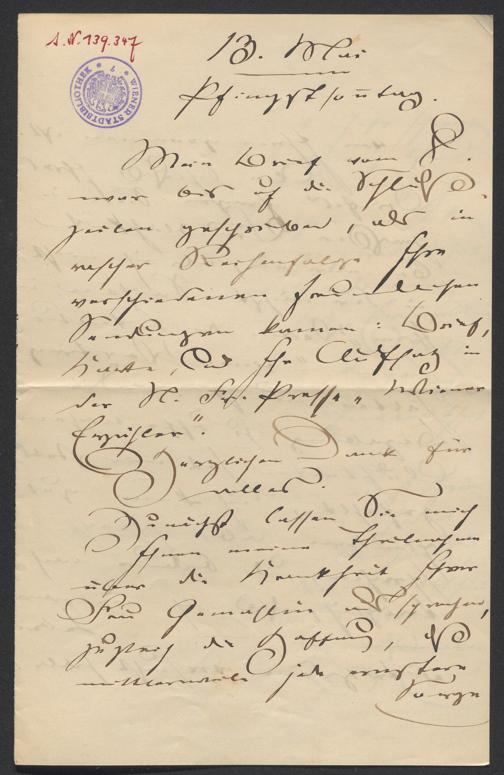 A. N. 139.347
WIENER STADTBIBLIOTHEK
13. Mai
Pfingstsonntag.
Mein Brief vom 8.
war bis auf die Schluß-
zeilen geschrieben, als in
rascher Reihenfolge Ihre
verschiedenen freundlichen
Sendungen kamen: Brief,
Karte, und Ihr Aufsatz in
der N. Fr. Presse „Wiener
Erzähler".
Herzlichen Dank für
alles.
Zunächst lassen Sie mich
Ihnen meine Theilnahme
über die Krankheit Ihrer
Frau Gemahlin aussprechen,
zugleich die Hoffnung, daß
mittlerweile jede ernstere
Sorge